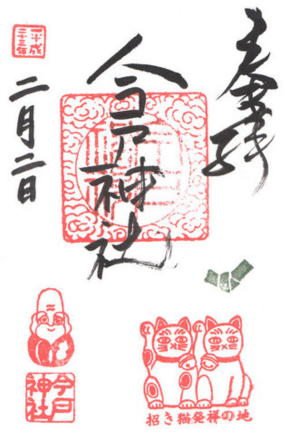 奉拝
今戸神社
平成
二十三年
二月二日
今戸
神社
招き猫発祥の地